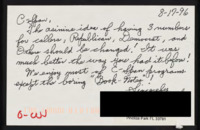 3-17-96
C-Span,
The asinine idea of having 3 numbers
for callers, Republican, Democrat, and
Other should be changed! It was
much better the way you had it before!
We enjoy most of C-Span programs
except the boring "Book Notes"